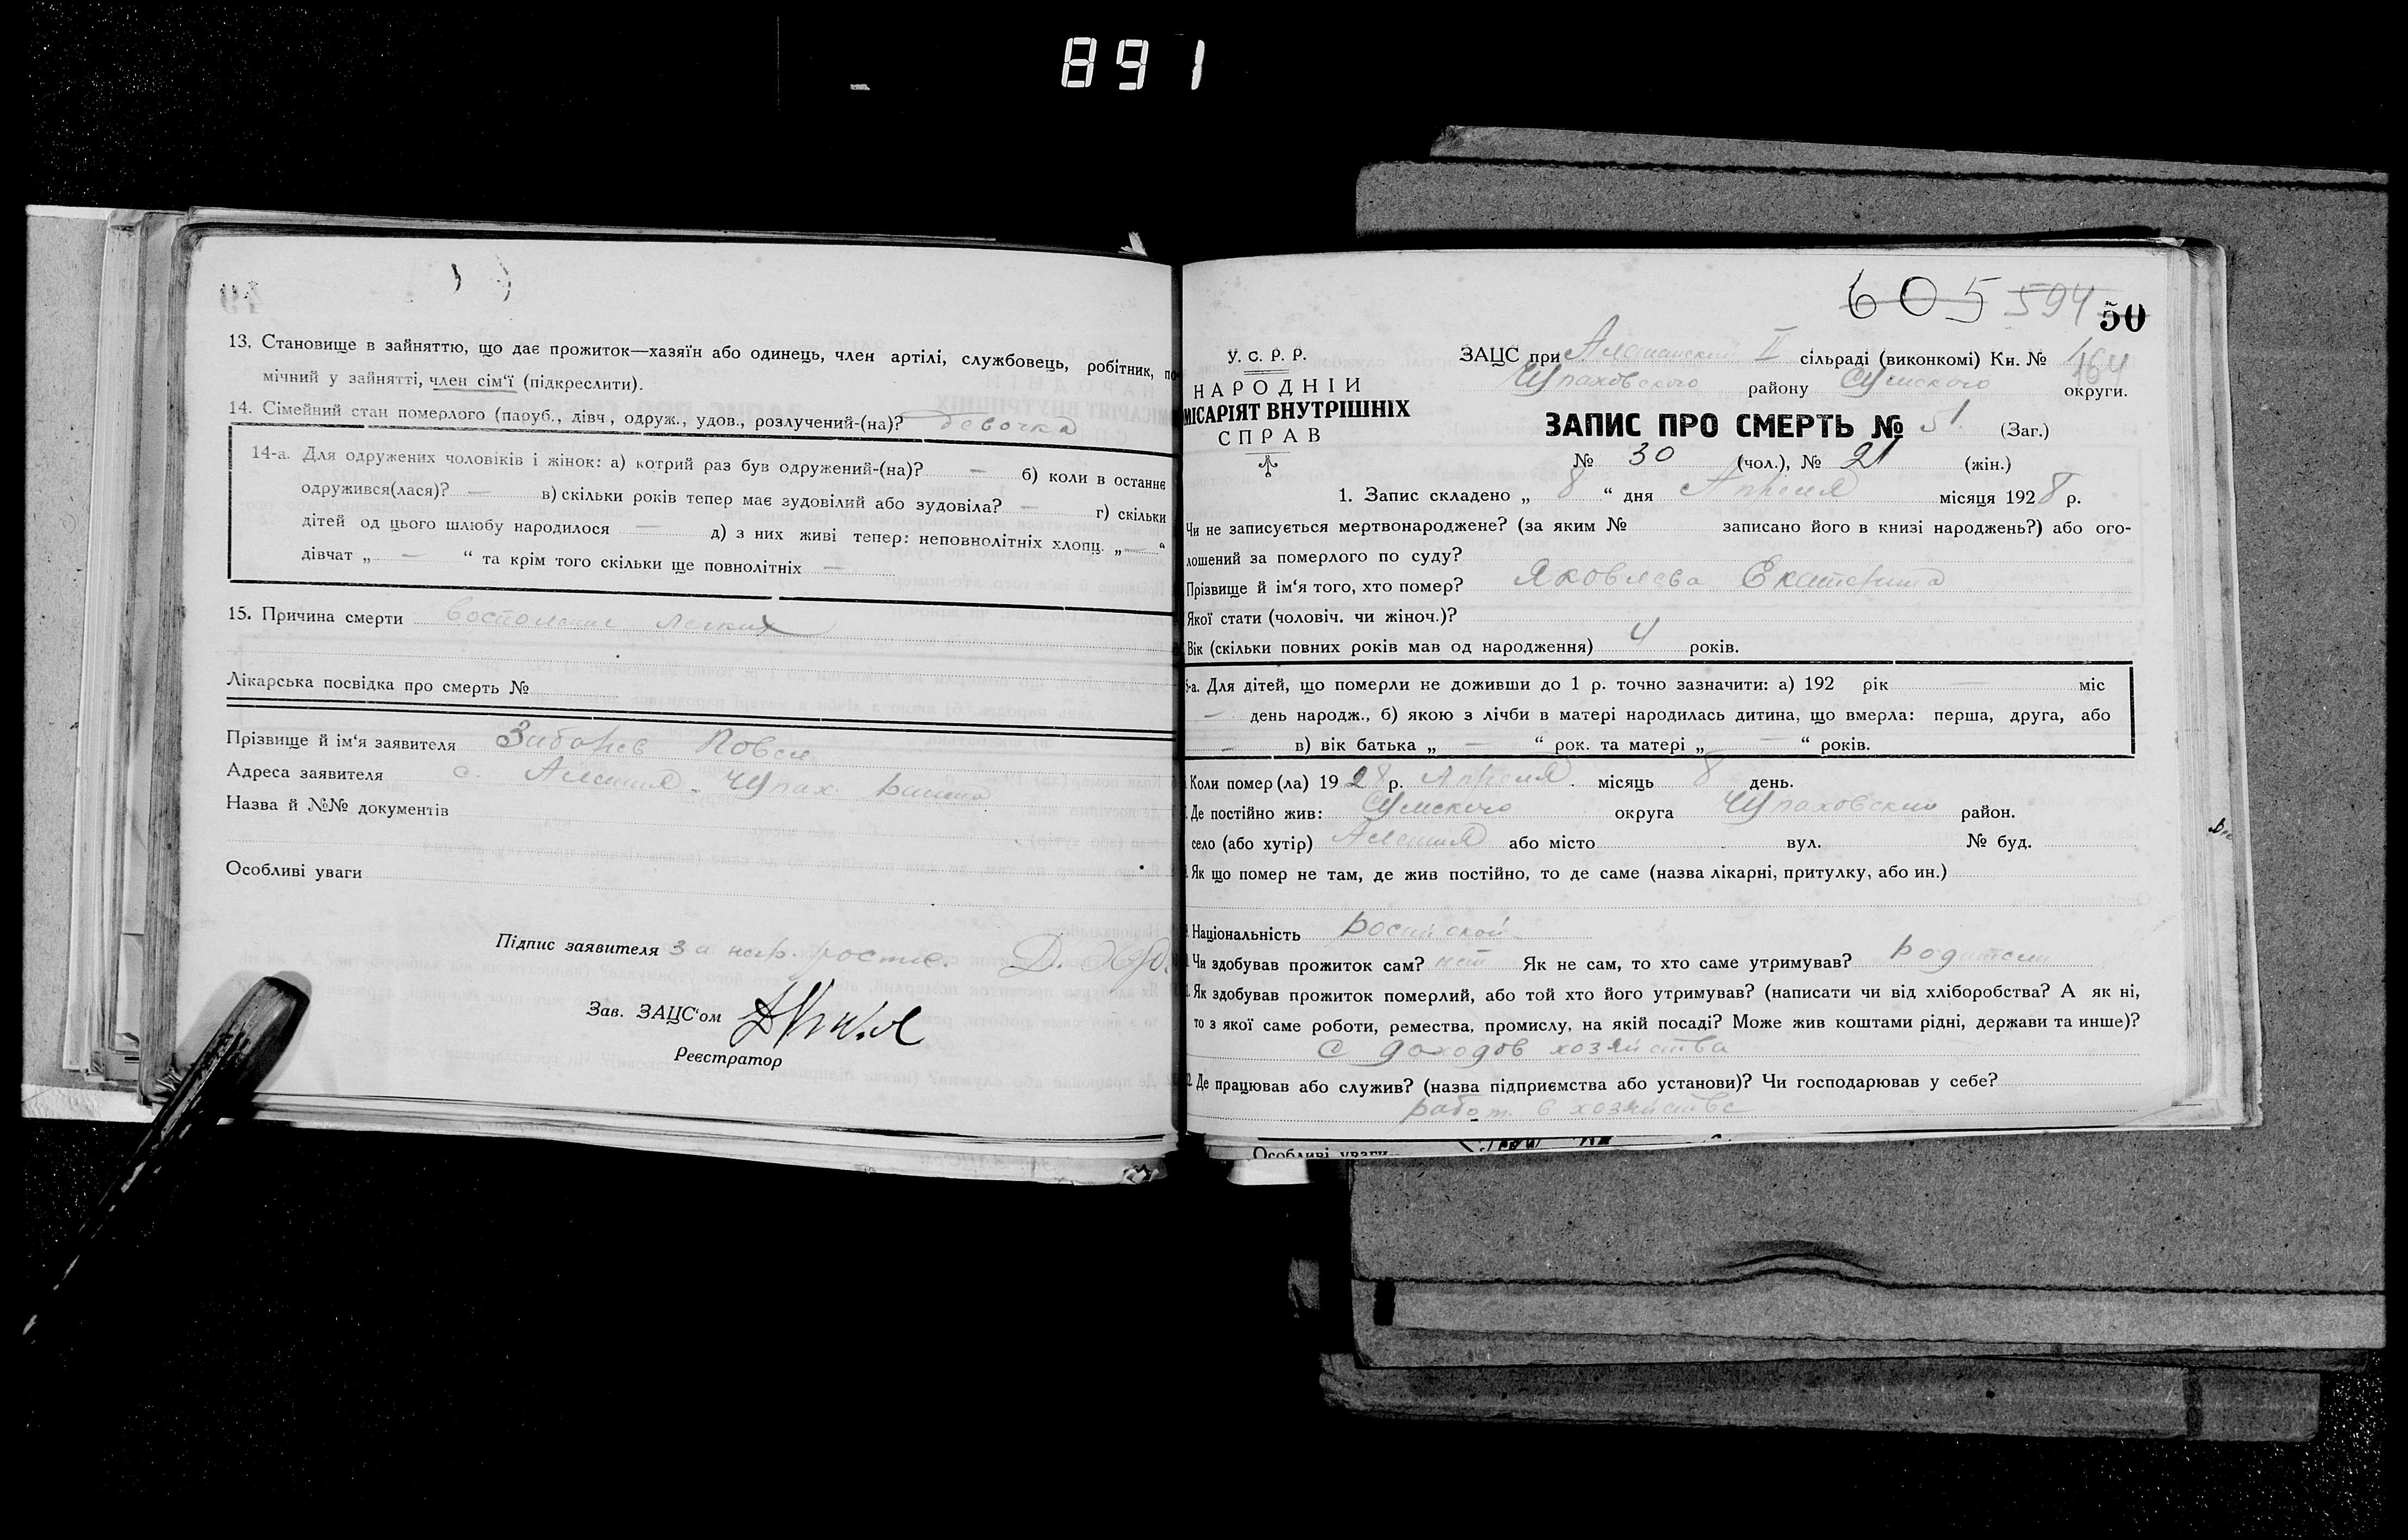 891
13. Становище в зайняттю, що дає прожиток—хазяїн або одинець, член артілі, службовець, робітник, по
мічний у зайнятті, член сім'ї (підкреслити).
14. Сімейний стан померлого (паруб., дівч, одруж., удов., розлучений-(на)? девочка
14-а. Для одружених чоловіків і жінок: а) котрий раз був одружений-(на)? — б) коли в останнє
одружився(лася)? — в) скільки років тепер має зудовілий або зудовіла? — г) скільки
дітей од цього шлюбу народилося — д) з них живі тепер: неповнолітніх хлопц. „ — “
дівчат „ — “ та крім того скільки ще повнолітніх —
15. Причина смерти легких
Лікарська посвідка про смерть №
Прізвище й ім'я заявителя
Адреса заявителя с.
Назва й №№ документів
Особливі уваги
Підпис заявителя за
Зав. ЗАЦС'ом
Реєстратор
605 594 50
У. С. Р. Р.
НАРОДНІЙ
МІСАРІЯТ ВНУТРІШНІХ
СПРАВ
ЗАЦС при II сільраді (виконкомі) Кн. №
Чупаховского району Сумского округи.
ЗАПИС ПРО СМЕРТЬ № 51 (Заг.)
№ 30 (чол.), № 21 (жін.)
1. Запис складено „ 8 “ дня Апреля місяця 1928 р.
Чи не записується мертвонароджене? (за яким № записано його в книзі народжень?) або ого-
лошений за померлого по суду?
Прізвище й ім'я того, хто помер? Яковлева Екатерина
Якої стати (чоловіч. чи жіноч.)?
Вік (скільки повних років мав од народження) 4 років.
5-а. Для дітей, що померли не доживши до 1 р. точно зазначити: а) 192 рік — міс
— день народж., б) якою з лічби в матері народилась дитина, що вмерла: перша, друга, або
— в) вік батька „ — “ рок. та матері „ — “ років.
Коли помер(ла) 1928 р. Апреля місяць 8 день.
Де постійно жив: Сумского округа Чупаховский район.
село (або хутір) Алешня або місто вул. № буд.
Як що помер не там, де жив постійно, то де саме (назва лікарні, притулку, або ин.)
Національність
Чи здобував прожиток сам? нет Як не сам, то хто саме утримував? родители
Як здобував прожиток померлий, або той хто його утримував? (написати чи від хліборобства? А як ні,
то з якої саме роботи, ремества, промислу, на якій посаді? Може жив коштами рідні, держави та инше)?
С доходов хозяйства
2. Де працював або служив? (назва підприємства або установи)? Чи господарював у себе?
работ. в хозяйстве
Особливі уваги